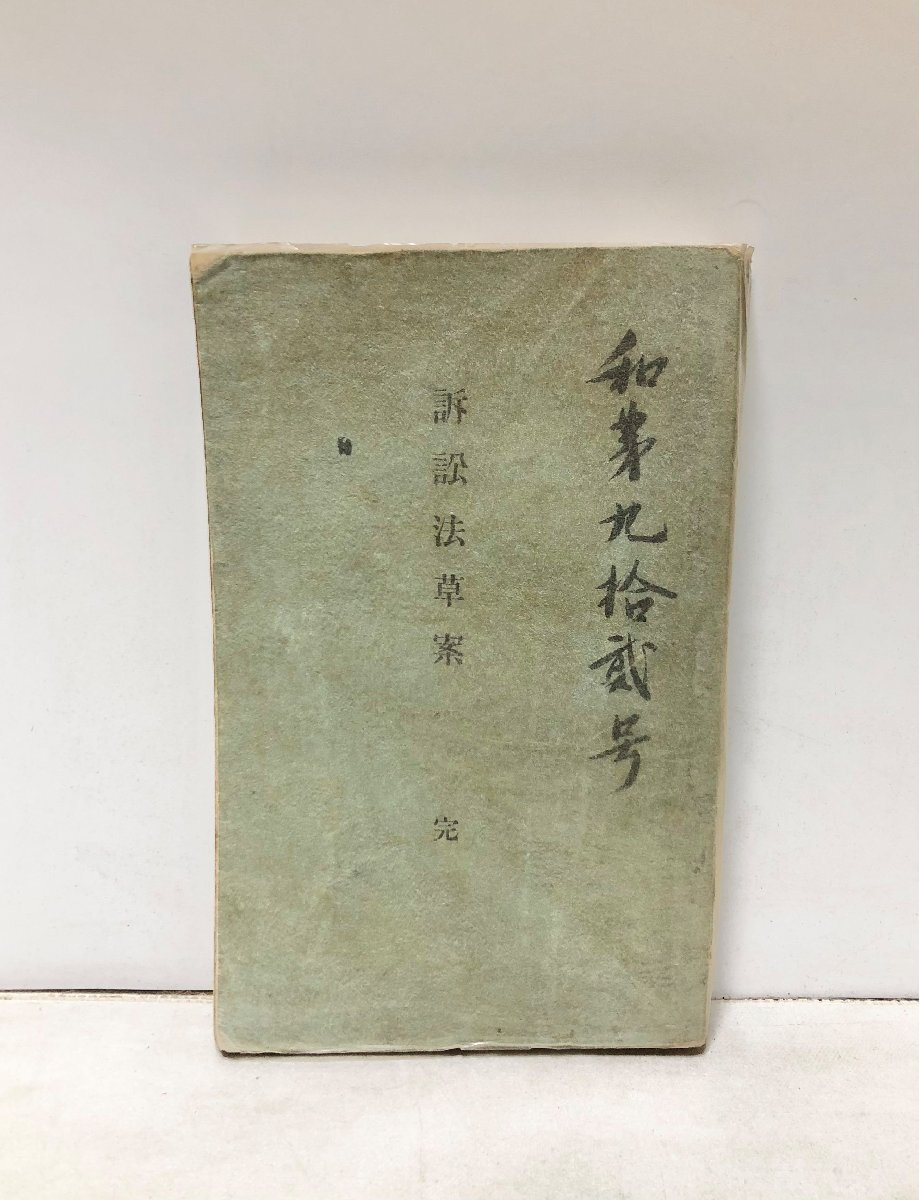 和第九拾貮号
訴訟法草案 完